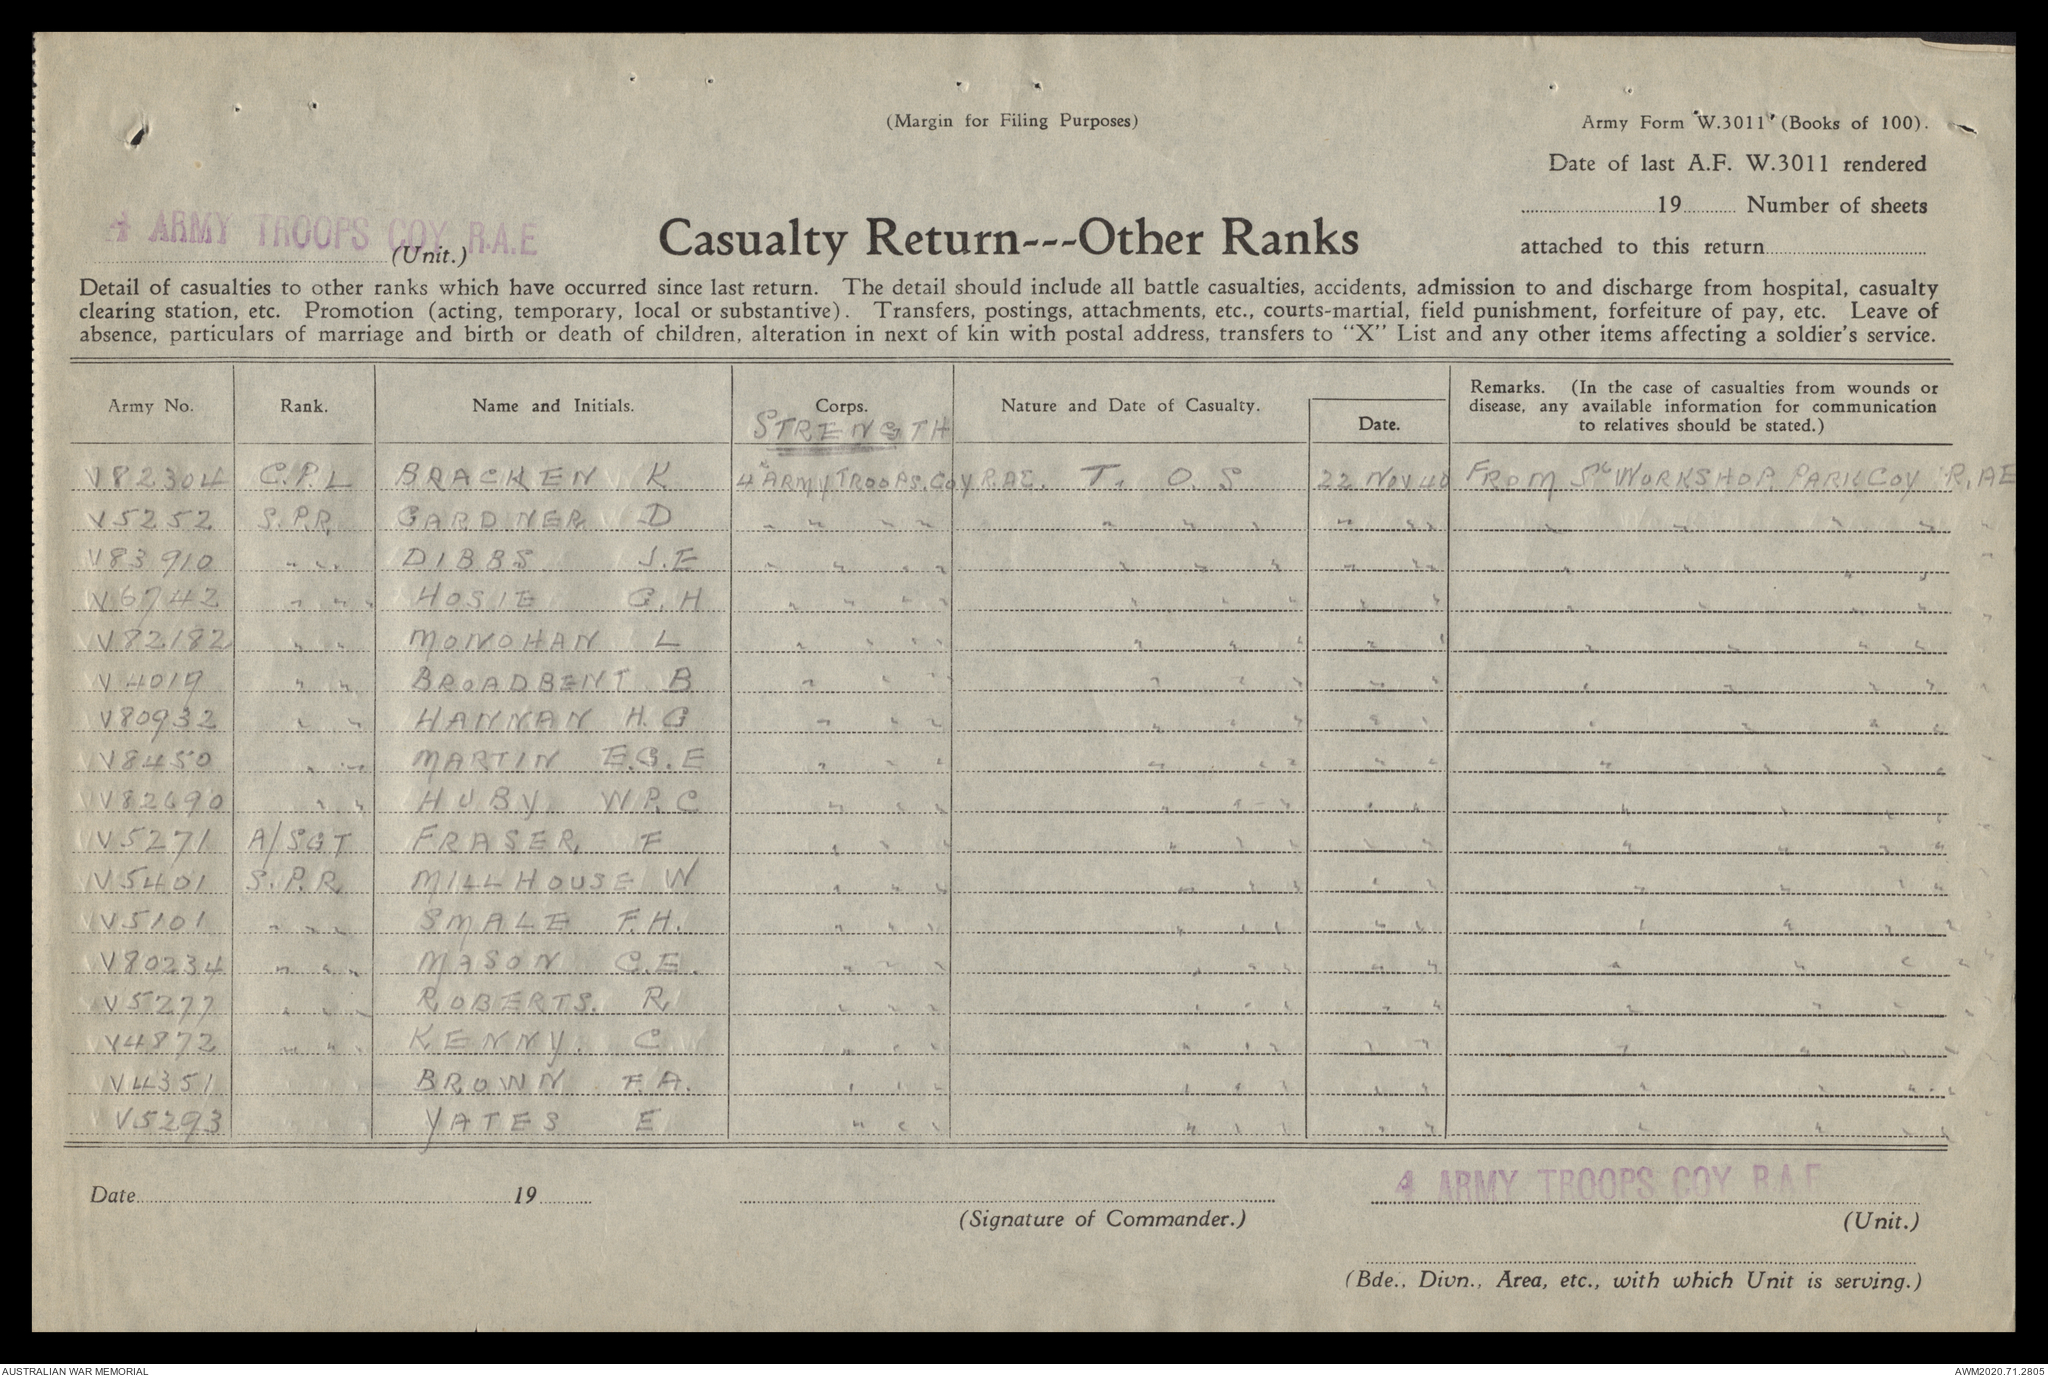 (Margin for Filing Purposes)
Army Form W.3011 (Books of 100).
Date of last A.F. W.3011 rendered
19 Number of sheets
attached to this return
4 ARMY TROOPS COY R.A.E
(Unit.)
Casualty Return---Other Ranks
Detail of casualties to other ranks which have occurred since last return. The detail should include all battle casualties, accidents, admission to and discharge from hospital, casualty
clearing station, etc. Promotion (acting, temporary, local or substantive). Transfers, postings, attachments, etc., courts-martial, field punishment, forfeiture of pay, etc. Leave of
absence, particulars of marriage and birth or death of children, alteration in next of kin with postal address, transfers to "X" List and any other items affecting a soldier's service.
Army No. Rank. Name and Initials. Corps. Nature and Date of Casualty. Date. Remarks. (In the case of casualties from wounds or
disease, any available information for communication
to relatives should be stated.)
STRENGTH
V82304 C.P.L BRACKEN K 4 ARMY TROOPS. COY R.A.E. T. O. S 22 NOV 40 FROM WORKSHOP PARK COY R.AE
V5252 S.P.R GARDINER D " " " " " " " " " " " " "
V83910 " " DIBBS J.E " " " " " " " " " " " " "
V6742 " " HOSIE G.H " " " " " " " " " " " " "
V82182 " " MONOHAN L " " " " " " " " " " " " "
V4019 " " BROADBENT B " " " " " " " " " " " "
V80932 " " HANNAN H.G " " " " " " " " " " " "
V8450 " " MARTIN E.G.E " " " " " " " " " " " "
V82690 " " HUBY W.P.C " " " " " " " " " " " "
V5271 A/SGT FRASER F " " " " " " " " " " " "
V5401 S.P.R MILLHOUSE W " " " " " " " " " " " "
V5101 " " " SMALE F.H. " " " " " " " " " " " "
V80234 " " " MASON C.E. " " " " " " " " " " " "
V5277 " " " ROBERTS. R " " " " " " " " " " " "
V4872 " " " KENNY. C " " " " " " " " " " "
V4351 BROWN F.A. " " " " " " " " " " " "
V5293 YATES E " " " " " " " " " " " "
Date 19
(Signature of Commander.)
4 ARMY TROOPS COY R.A.E
(Unit.)
(Bde., Divn., Area, etc., with which Unit is serving.)
AUSTRALIAN WAR MEMORIAL
AWM2020.71.2805